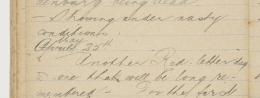 - Showing under nasty
conditions.
May
April 25th
Another Red-letter day
one that will be long re-
membered! - For the first